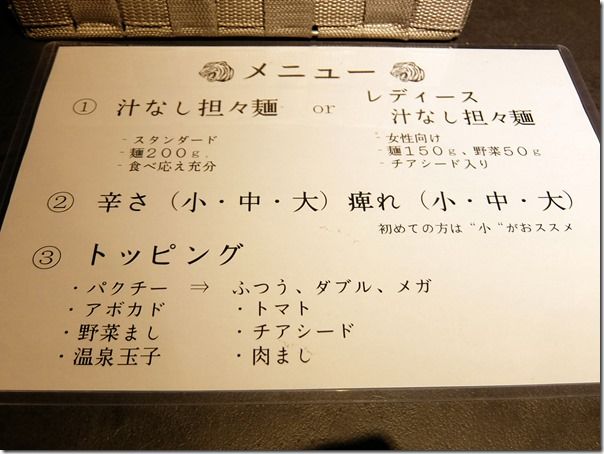 メニュー
① 汁なし担々麺 or レディース 汁なし担々麺
- スタンダード
- 麺200g.
- 食べ応え充分
- 女性向け
- 麺150g、野菜50g
- チアシード入り
② 辛さ（小・中・大）痺れ（小・中・大）
初めての方は"小"がおススメ
③ トッピング
・パクチー ⇒ ふつう、ダブル、メガ
・アボカド ・トマト
・野菜まし ・チアシード
・温泉玉子 ・肉まし